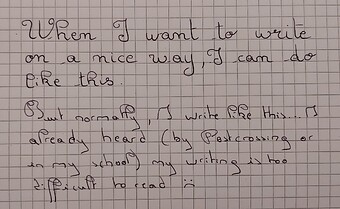 When I want to write
on a nice way, I can do
like this.
But normally, I write like this... I
already heard (by Postcrossing or
in my school) my writing is too
difficult to read :(